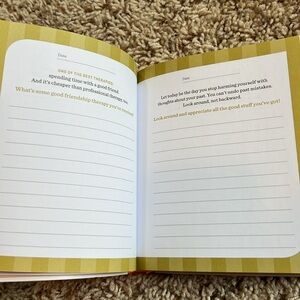 Date
ONE OF THE BEST THERAPIES:
spending time with a good friend.
And it's cheaper than professional therapy, too.
What's some good friendship therapy you've received?
Date
Let today be the day you stop harming yourself with
thoughts about your past. You can't undo past mistakes.
Look around, not backward.
Look around and appreciate all the good stuff you've got!